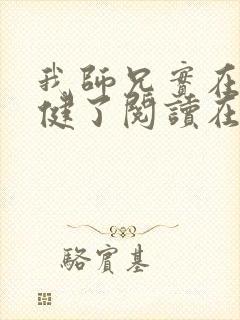 我師兄實在
健了閱讀在
駱賓基